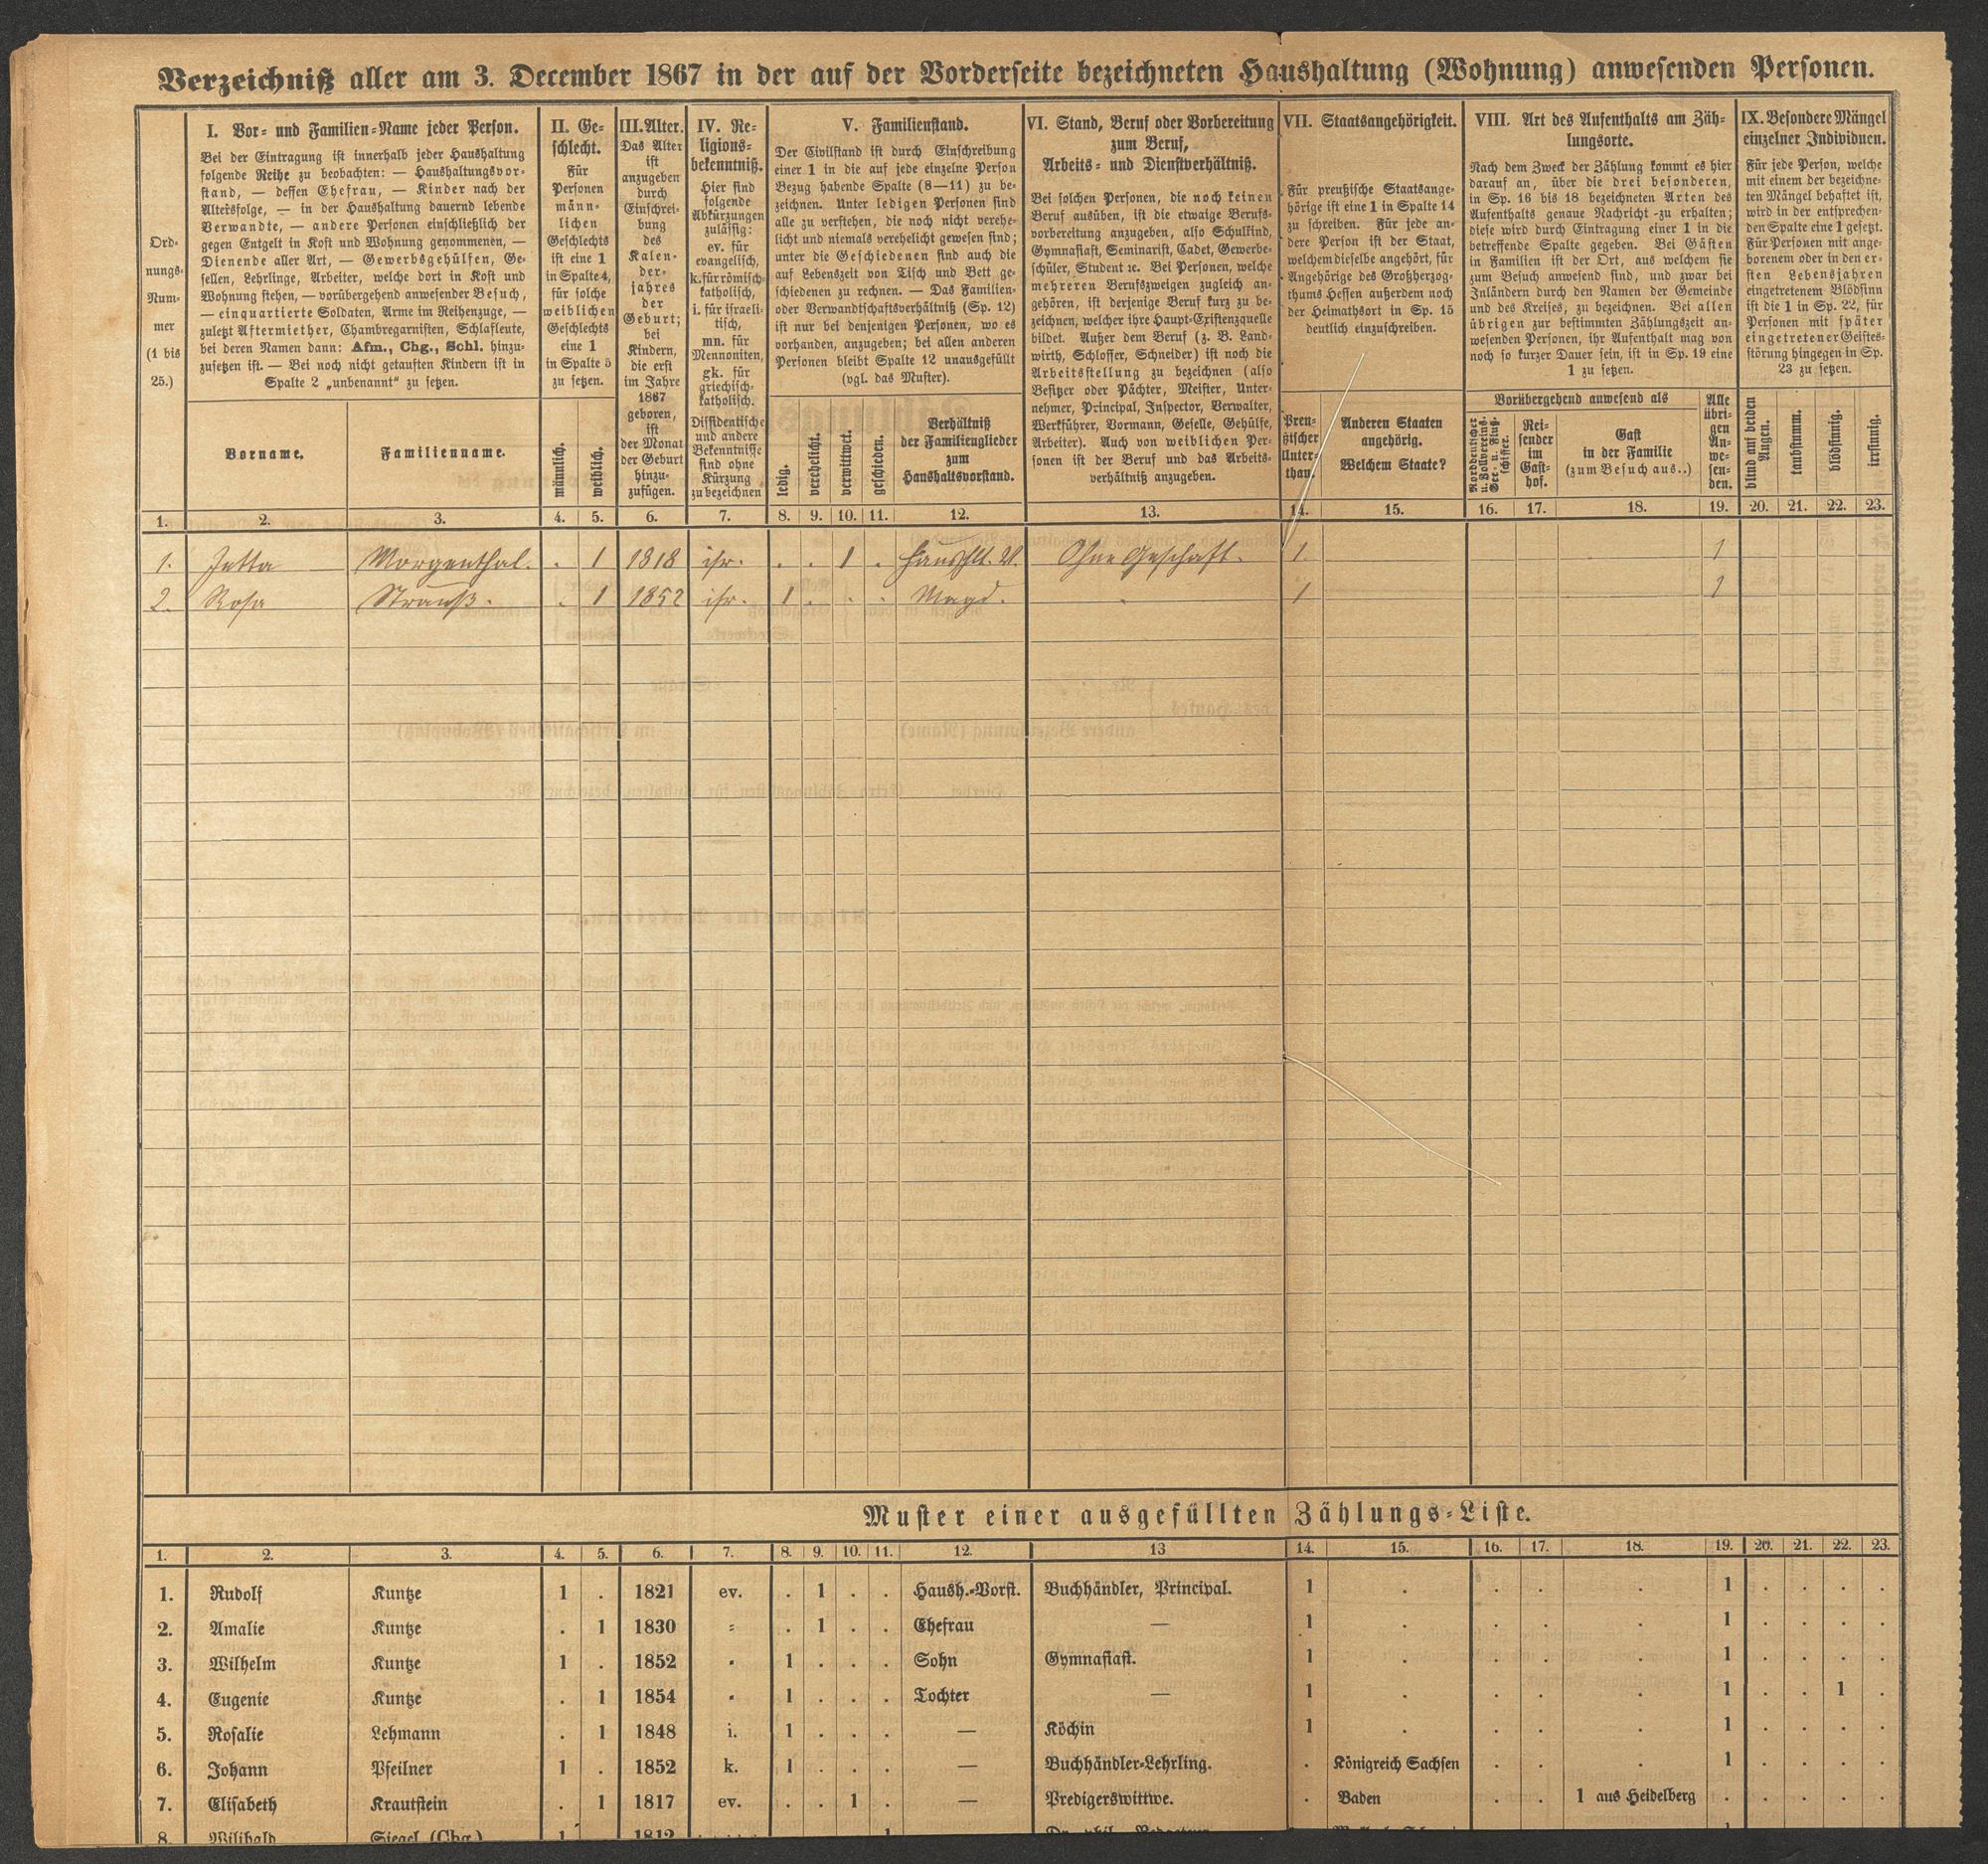 Verzeichniß aller am 3. December 1867 in der auf der Vorderseite bezeichneten Haushaltung (Wohnung) anwesenden Personen.
Ord-
nungs-
Num-
mer
(1 bis
25.)
I. Vor- und Familien-Name jeder Person.
Bei der Eintragung ist innerhalb jeder Haushaltung
folgende Reihe zu beobachten: — Haushaltungsvor-
stand, — dessen Ehefrau, — Kinder nach der
Altersfolge, — in der Haushaltung dauernd lebende
Verwandte, — andere Personen einschließlich der
gegen Entgelt in Kost und Wohnung genommenen, —
Dienende aller Art, — Gewerbsgehülfen, Ge-
sellen, Lehrlinge, Arbeiter, welche dort in Kost und
Wohnung stehen, — vorübergehend anwesender Besuch,
— einquartierte Soldaten, Arme im Reihenzuge, —
zuletzt Aftermiether, Chambregarnisten, Schlafleute,
bei deren Namen dann: Afm., Chg., Schl. hinzu-
zusetzen ist. — Bei noch nicht getauften Kindern ist in
Spalte 2 „unbenannt“ zu setzen.
Vorname.
Familienname.
II. Ge-
schlecht.
Für
Personen
männ-
lichen
Geschlechts
ist eine 1
in Spalte 4,
für solche
weiblichen
Geschlechts
eine 1
in Spalte 5
zu setzen.
männlich.
weiblich.
III. Alter.
Das Alter
ist
anzugeben
durch
Einschrei-
bung
des
Kalen-
der-
jahres
der
Geburt;
bei
Kindern,
die erst
im Jahre
1867
geboren,
ist
der Monat
der Geburt
hinzu-
zufügen.
IV. Re-
ligions-
bekenntniß.
Hier sind
folgende
Abkürzungen
zulässig:
ev. für
evangelisch,
k. für römisch-
katholisch,
i. für israeli-
tisch,
mn. für
Mennoniten,
gk. für
griechisch-
katholisch.
Dissidentische
und andere
Bekenntnisse
sind ohne
Kürzung
zu bezeichnen
V. Familienstand.
Der Civilstand ist durch Einschreibung
einer 1 in die auf jede einzelne Person
Bezug habende Spalte (8—11) zu be-
zeichnen. Unter ledigen Personen sind
alle zu verstehen, die noch nicht verehe-
licht und niemals verehelicht gewesen sind;
unter die Geschiedenen sind auch die
auf Lebenszeit von Tisch und Bett ge-
schiedenen zu rechnen. — Das Familien-
oder Verwandtschaftsverhältniß (Sp. 12)
ist nur bei denjenigen Personen, wo es
vorhanden, anzugeben; bei allen anderen
Personen bleibt Spalte 12 unausgefüllt
(vgl. das Muster).
ledig.
verehelicht.
verwittwet.
geschieden.
Verhältniß
der Familienglieder
zum
Haushaltsvorstand.
VI. Stand, Beruf oder Vorbereitung
zum Beruf,
Arbeits- und Dienstverhältniß.
Bei solchen Personen, die noch keinen
Beruf ausüben, ist die etwaige Berufs-
vorbereitung anzugeben, also Schulkind,
Gymnasiast, Seminarist, Cadet, Gewerbe-
schüler, Student ꝛc. Bei Personen, welche
mehreren Berufszweigen zugleich an-
gehören, ist derjenige Beruf kurz zu be-
zeichnen, welcher ihre Haupt-Existenzquelle
bildet. Außer dem Beruf (z. B. Land-
wirth, Schlosser, Schneider) ist noch die
Arbeitsstellung zu bezeichnen (also
Besitzer oder Pächter, Meister, Unter-
nehmer, Principal, Inspector, Verwalter,
Werkführer, Vormann, Geselle, Gehülfe,
Arbeiter). Auch von weiblichen Per-
sonen ist der Beruf und das Arbeits-
verhältniß anzugeben.
VII. Staatsangehörigkeit.
Für preußische Staatsange-
hörige ist eine 1 in Spalte 14
zu schreiben. Für jede an-
dere Person ist der Staat,
welchem dieselbe angehört, für
Angehörige des Großherzog-
thums Hessen außerdem noch
der Heimathsort in Sp. 15
deutlich einzuschreiben.
Preu-
ßischer
Unter-
than.
Anderen Staaten
angehörig.
Welchem Staate?
VIII. Art des Aufenthalts am Zäh-
lungsorte.
Nach dem Zweck der Zählung kommt es hier
darauf an, über die drei besonderen,
in Sp. 16 bis 18 bezeichneten Arten des
Aufenthalts genaue Nachricht zu erhalten;
diese wird durch Eintragung einer 1 in die
betreffende Spalte gegeben. Bei Gästen
in Familien ist der Ort, aus welchem sie
zum Besuch anwesend sind, und zwar bei
Inländern durch den Namen der Gemeinde
und des Kreises, zu bezeichnen. Bei allen
übrigen zur bestimmten Zählungszeit an-
wesenden Personen, ihr Aufenthalt mag von
noch so kurzer Dauer sein, ist in Sp. 19 eine
1 zu setzen.
Vorübergehend anwesend als
Norddeutscher
u. Zollvereins-
See- u. Fluß-
schiffer.
Rei-
sender
im
Gast-
hof.
Gast
in der Familie
(zum Besuch aus..)
Alle
übri-
gen
An-
we-
sen-
den.
IX. Besondere Mängel
einzelner Individuen.
Für jede Person, welche
mit einem der bezeichne-
ten Mängel behaftet ist,
wird in der entsprechen-
den Spalte eine 1 gesetzt.
Für Personen mit ange-
borenem oder in den er-
sten Lebensjahren
eingetretenem Blödsinn
ist die 1 in Sp. 22, für
Personen mit später
eingetretener Geistes-
störung hingegen in Sp.
23 zu setzen.
blind auf beiden
Augen.
taubstumm.
blödsinnig.
irrsinnig.
1. 2. 3. 4. 5. 6. 7. 8. 9. 10. 11. 12. 13. 14. 15. 16. 17. 18. 19. 20. 21. 22. 23.
1. Jetta Morgenthal. . 1 1818 isr. . . 1 . Haushlt. V. Ohne Geschäft. 1. 1
2. Rosa Strauß. . 1 1852 isr. 1 . . . Magd. . 1 1
Muster einer ausgefüllten Zählungs-Liste.
1. 2. 3. 4. 5. 6. 7. 8. 9. 10. 11. 12. 13 14. 15. 16. 17. 18. 19. 20. 21. 22. 23.
1. Rudolf Kuntze 1 . 1821 ev. . 1 . . Haush.-Vorst. Buchhändler, Principal. 1 . . . . 1 . . . .
2. Amalie Kuntze . 1 1830 = . 1 . . Ehefrau — 1 . . . . 1 . . . .
3. Wilhelm Kuntze 1 . 1852 = 1 . . . Sohn Gymnasiast. 1 . . . . 1 . . . .
4. Eugenie Kuntze . 1 1854 = 1 . . . Tochter — 1 . . . . 1 . . 1 .
5. Rosalie Lehmann . 1 1848 i. 1 . . . — Köchin 1 . . . . 1 . . . .
6. Johann Pfeilner 1 . 1852 k. 1 . . . — Buchhändler-Lehrling. . Königreich Sachsen . . . 1 . . . .
7. Elisabeth Krautstein . 1 1817 ev. . . 1 . — Predigerswittwe. . Baden . . 1 aus Heidelberg . . . . .
8. Wilibald Siegel (Chg.) 1 1812 1 Dr. phil.